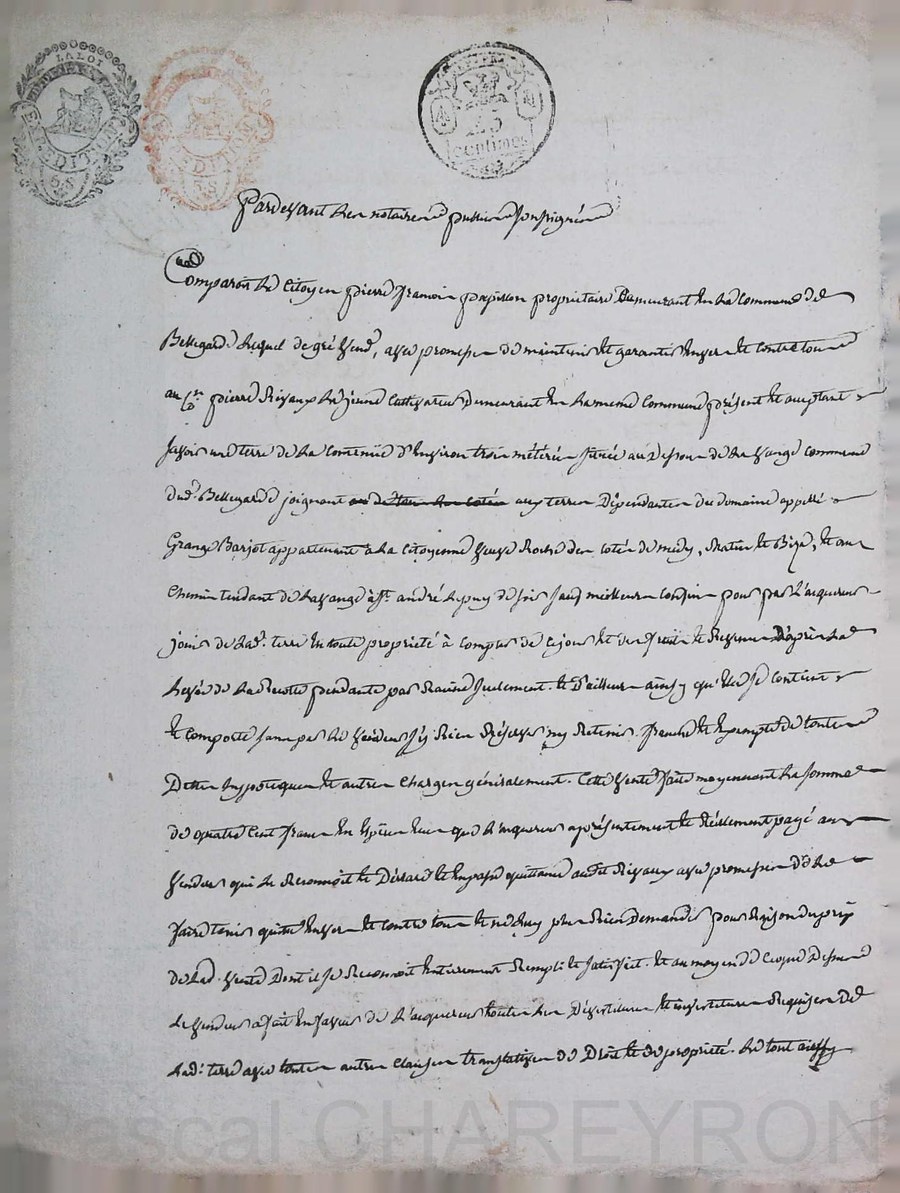 LA LOI
25
centimes
Pardevant les notaires publics soussignés
Comparoit le Citoyen pierre françois papillon proprietaire Demeurant en la commune de
Bellegarde lequel de gré Vend, avec promesse de maintenir et garantir Envers et Contre tous
au Cen. pierre Rivaux le jeune Cultivateur Demeurant En la meme Commune présent et acceptant
Savoir une terre de la Contenüe d'Environ trois métérées Située au Dessous de la Vange commune
dud. Bellegarde joignant aux terres Dépendantes du domaine appellé
Grange Barjot appartenant a la Citoyenne Veuve Roche des cotés de midy, Matin et Bize, et au
Chemin tendant de Lavange à St. andré le puy de soir sauf meilleurs Confins pour par l'acquereur
jouir de lad. terre En toute propriété à compter de ce jour et des fruits et Revenus D'après la
levée de la Recolte pendante par Racine Seulement. et D'ailleurs ainsy qu'Elle se contient
et comporte sans par le Vendeur s'y Rien Réserver ny Retenir. franche et Exempte de toutes
Dettes hypoteques et autres Charges généralement. Cette Vente faite moyennant la somme
de quatre Cent francs En Espèces que l'acquereur a présentement et Réellement payé au
Vendeur qui le Reconnoit et Déclare et En passe quittance audit Rivaux avec promesse de le
faire tenir quitte Envers et Contre tous et ne luy plus Rien Demander pour Raison du prix
de lad. Vente Dont il se Reconnoit Entierement Rempli et Satisfait. et au moyen de Ce que Dessus
le Vendeur a fait En faveur de l'acquereur toutes les Dévetitures et investitures Requises de
lad. terre avec toutes autres Clauses translatives de Droit et de propriété. le tout ainsy
Pascal CHAREYRON